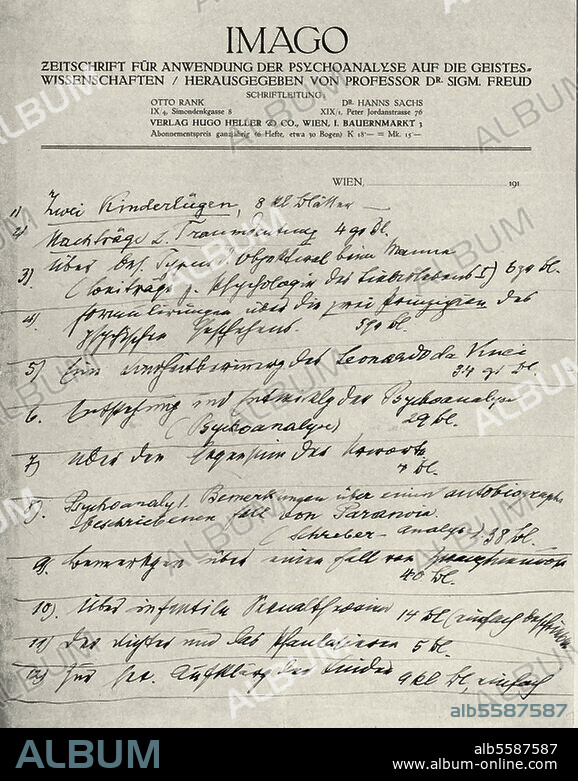 IMAGO
ZEITSCHRIFT FÜR ANWENDUNG DER PSYCHOANALYSE AUF DIE GEISTES-
WISSENSCHAFTEN / HERAUSGEGEBEN VON PROFESSOR DR. SIGM. FREUD
SCHRIFTLEITUNG:
OTTO RANK DR. HANNS SACHS
IX/4, Simondenkgasse 8 XIX/1, Peter Jordanstrasse 76
VERLAG HUGO HELLER & CO., WIEN, I. BAUERNMARKT 3
Abonnementspreis ganzjährig (6 Hefte, etwa 30 Bogen) K 18·— = Mk. 15·—
WIEN, 191
1) Zwei Kinderlügen, 8 kl Blätter —
2) Nachträge z. Traumdeutung 4 gr Bl.
3) Über bes. Typus Objektwahl beim Manne
(Beiträge z. Psychologie des Liebeslebens I) 6 gr Bl.
4) Formulierungen über die zwei Prinzipien des
psychischen Geschehens. 5 gr Bl
5) Eine Kindheitserinnerg des Leonardo da Vinci
34 gr Bl.
6. Entstehung und Entwicklg der Psychoanalyse
(Psychoanalyse) 29 Bl.
7) Über den Gegensinn der Urworte
7 Bl.
8). Psychoanalyt. Bemerkungen über einen autobiograph
beschriebenen Fall von Paranoia
(Schreber - Analyse), 38 Bl.
9). Bemerkgen über einen Fall von Zwangsneurose
40 Bl.
10). Über infantile Sexualtheorien 14 Bl (einfach
11) Der Dichter und das Phantasieren 5 Bl.
12) Zur sex. Aufklärg der Kinder 9 kl Bl, einfach
ALBUM
alb5587587
ALBUM
alb5587587
www.album-online.com